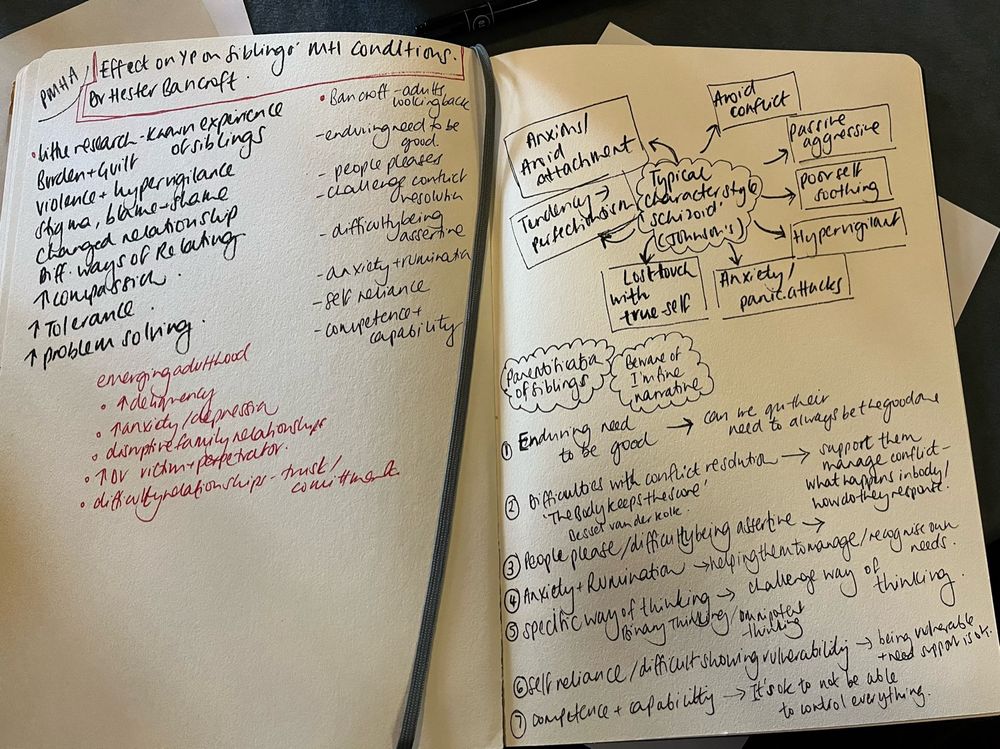 PMHA
Effect on YP on Siblings' MH Conditions.
Dr Hester Bancroft.
• little research - known experience
of siblings
Burden + Guilt
violence + hypervigilance
stigma, blame + shame
changed relationship
Diff. ways of Relating
↑ compassion.
↑ Tolerance.
↑ problem solving.
emerging adulthood
• ↑ delinquency
• ↑ anxiety/depression
• disruptive family relationships
• ↑ DV victim + perpetrator.
• difficulty relationships - trust/
committment
• Bancroft - adults
looking back
- enduring need to be
good.
- people pleases
- challenge conflict
resolution
- difficulty being
assertine
- anxiety + rumination
- self reliance
- competence +
capability
Anxious/
Avoid
attachment
Avoid
conflict
passive
aggressive
Typical
character style
'schizoid'
(Johnson's)
poor self
soothing
Tendency →
perfectionism
Hypervigilant
Lost touch
with
true-self
Anxiety/
panic attacks
Parentification
of siblings
Beware of
I'm fine
narrative
① Enduring need
to be good → can we qu. their
need to always be the good one
② Difficulties with conflict resolution → support them
manage conflict -
what happens in body/
how do they response.
'The Body keeps the score'
Bessel van der Kolk.
③ People please/difficulty being assertive →
④ Anxiety + Rumination → helping them to manage/recognise own
needs.
⑤ specific way of thinking → challenge way of
thinking.
Binary Thinking/omnipotent
-thinking
⑥ self reliance/difficult showing vulnerability → being vulnerable
+ need support is ok.
⑦ competence + capability → It's ok to not be able
to control everything.